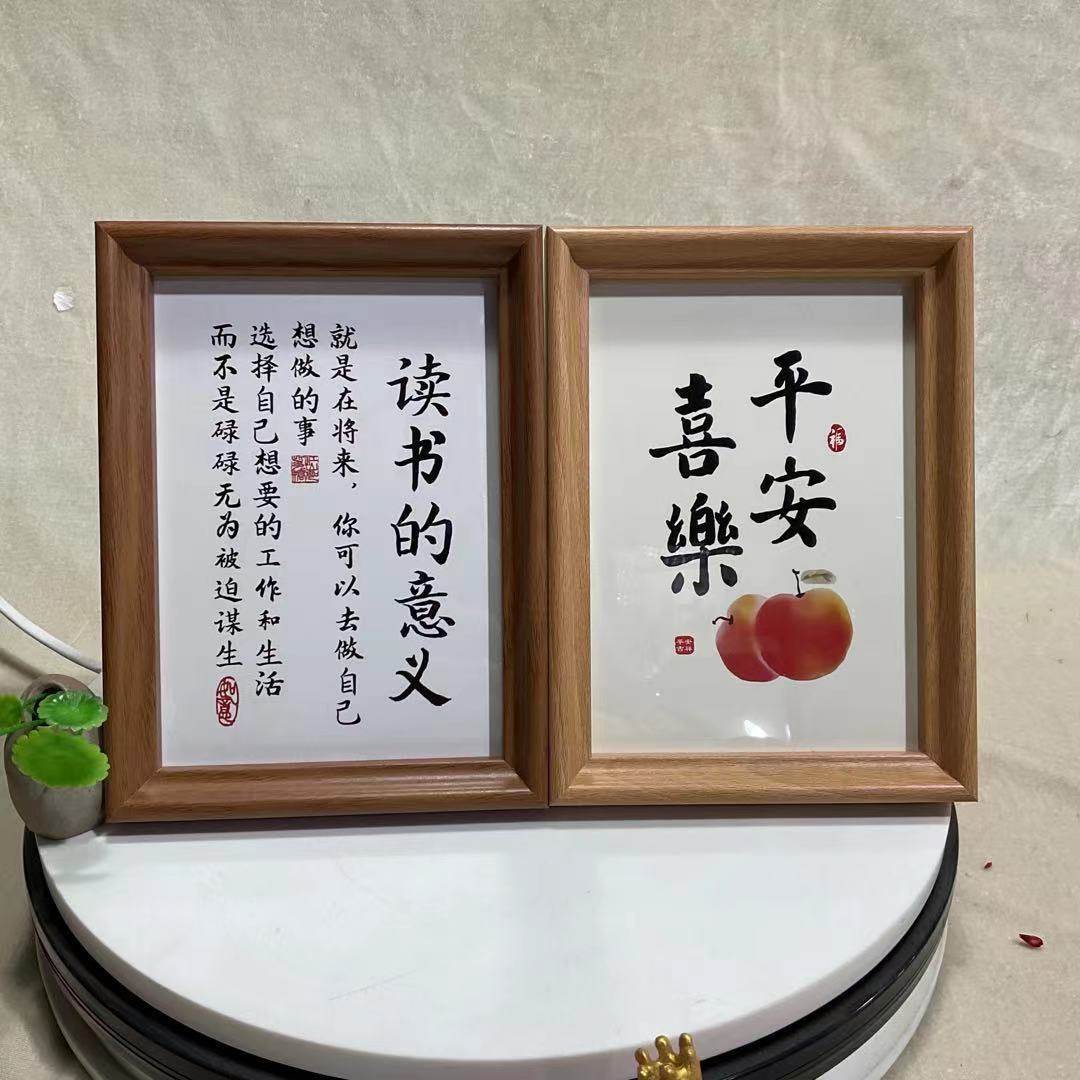 读书的意义
就是在将来，你可以去做自己
想做的事
选择自己想要的工作和生活
而不是碌碌无为被迫谋生
如意
平安
喜樂
福
平安
吉祥